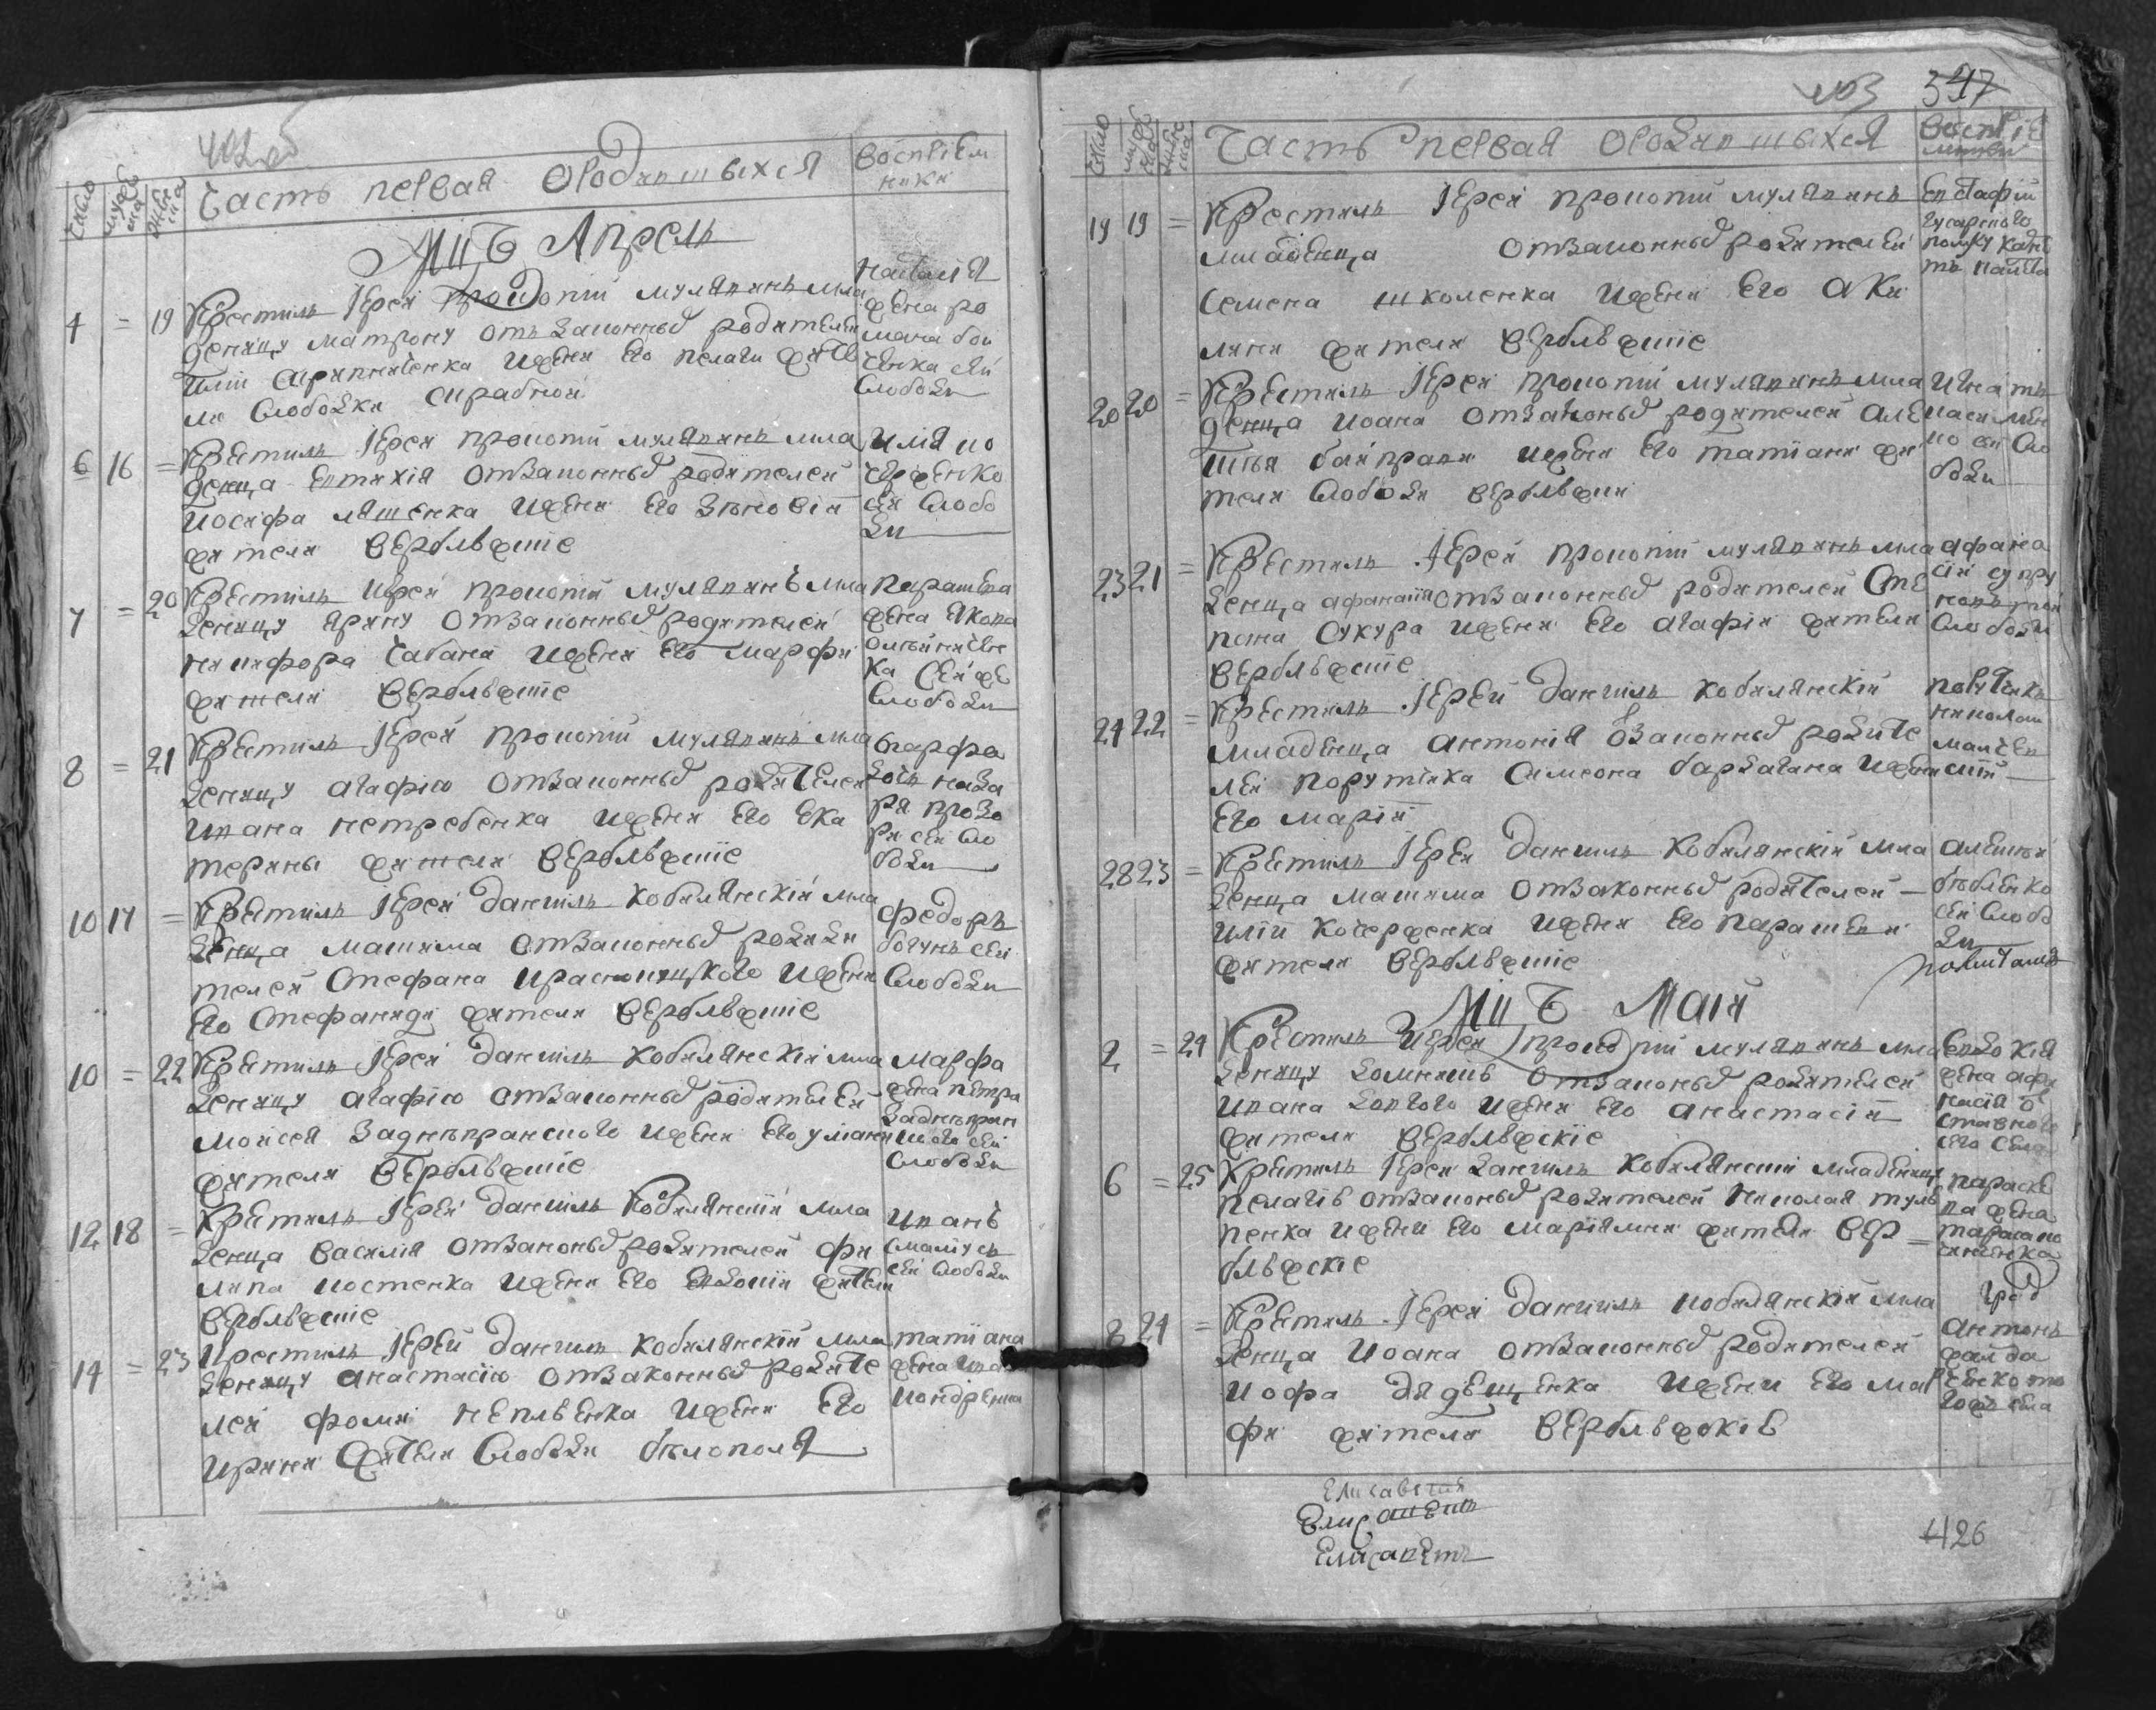 Число
муж
жен
Часть первая о родившыхся
восприемники
Мцъ Апрель
4 = 19 Крестилъ Іерей Прокопій муляринъ мла
деницу матрону отъ законныхъ родителей
Илїи скрипниченка и жены его пелагїи жите
ли слободки скрабной
Наталія
жена ро
мана бои
ченка сей
слободы
6 16 = Крестилъ Іерей прокопій муляринъ мла
денца Евтихія отъ законныхъ родителей
Іосифа ляшенка и жены его Зѣновіи
жители верблюжскіе
Илія ко
черженко
сей слобо
ды
7 = 20 Крестилъ Иерей прокопій муляринъ мла
деницу Ярину отъ законныхъ родителей
никифора чабана и жены его марфы
жители верблюжскіе
Парашева
жена Якова
олѣйниче
ка сей же
слободы
8 = 21 Крестилъ Іерей прокопій муляринъ мла
деницу агафію отъ законныхъ родителей
Ивана нетребенка и жены его ека
терины жители верблюжскіе
ря сей сло
боды
10 17 = Крестилъ Іерей даніилъ кобилянскій мла
денца максима отъ законныхъ роди
телей Стефана красноицкого и жены
его Стефаниды жители верблюжскіе
федоръ
богунъ сей
слободы
10 = 22 Крестилъ Іерей даніилъ кобилянскій мла
деницу агафію отъ законныхъ родителей
моисея заднѣпрянского и жены его уляни
жители верблюжскіе
марфа
жена петра
заднѣпрян
ского сей
слободы
12 18 = Крестилъ Іерей даніилъ кобилянскій мла
денца василія отъ законныхъ родителей фи
липа костенка и жены его евдокіи жители
верблюжскіе
иванъ
смаліусъ
сей слободы
14 = 23 Крестилъ Іерей даніилъ кобилянскій мла
деницу анастасію отъ законныхъ родите
лей фомы неплѣенка и жены его
ирины жители слободы бѣлополя
татіана
жена ива
кондренка
403 397
Число
Часть первая о родившыхся
19 19 = Крестилъ Іерей прокопій муляринъ
младенца отъ законныхъ родителей
Семена школенка и жены его аки
лини жители верблюжскіе
евстафій
гусарского
полку каде
тъ
20 20 = Крестилъ Іерей прокопій муляринъ мла
денца иоана отъ законныхъ родителей але
ксѣя байрака и жены его татіани жи
тели слободы верблюжки
игнатъ
ко сей сло
боды
23 21 = Крестилъ Іерей прокопій муляринъ мла
денца афанасїя отъ законныхъ родителей Сте
пана Сукура и жены его агафіи жители
верблюжскіе
афана
сій супру
слободы
24 22 = Крестилъ Іерей даніилъ кобилянскій
младенца антонія от законныхъ родите
лей поручика Симеона бардагана и жены
его маріи
поручикъ
николай
28 23 = Крестилъ Іерей даніилъ кобилянскій мла
денца максима отъ законныхъ родителей
илїи кочерженка и жены его парашеви
жители верблюжскіе
алексѣй
бѣбленко
сей слобо
ды
Мцъ Маій
2 = 24 Крестилъ Иерей прокопій муляринъ мла
деницу домникію отъ законныхъ родителей
ивана довгого и жены его анастасіи
жители верблюжскіе
евдокія
жена афа
насія о
ставного
сего села
6 = 25 Крестилъ Іерей даніилъ кобилянскій младеницу
пелагію отъ законныхъ родителей николая туль
пенка и жены его маріямни жители вер
блюжскіе
параске
ва жена
8 24 = Крестилъ Іерей даніилъ кобилянскій мла
денца иоана отъ законныхъ родителей
иофа дядѣщенка и жены его мар
фи жители верблюжскіе
антонъ
фалда
ченко то
гожъ села
Елисаветъ
426